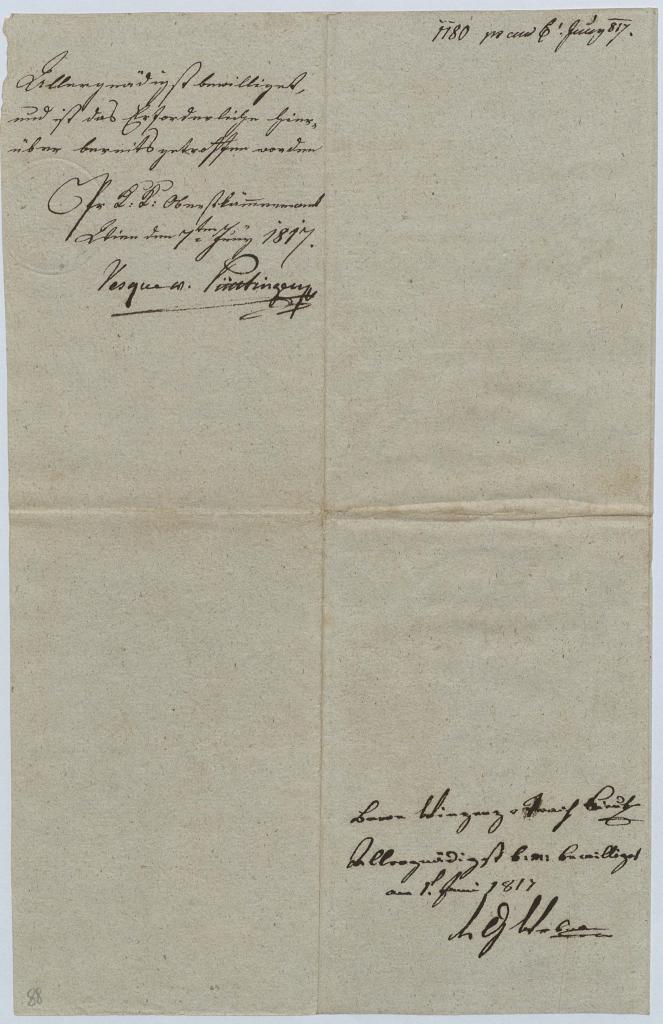 1180 pr am 6t Juny 817.
Allergnädigst bewilliget,
und ist das Erforderliche hier-
über bereits getroffen worden
Pr K: K: Oberstkämmereramt
Wien den 7ten Juny 1817.
Vesque v. Püttlingen
Allergnädigst bewilliget
am 1t Juni 1817
88